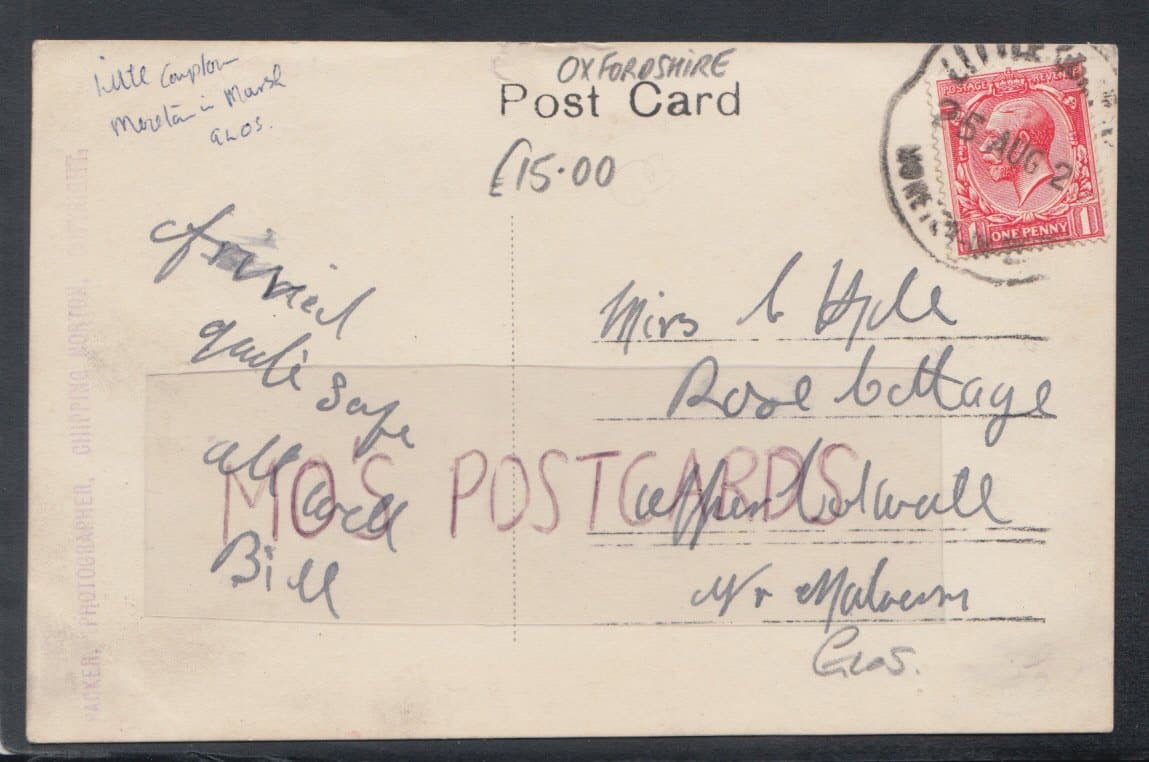 little Compton
Moreton in Marsh
GLOS.
OXFORDSHIRE
Post Card
£15.00
LITTLE
25 AUG 2
MORETON
POSTAGE REVENUE
1 ONE PENNY 1
Arrived
quite safe
all well
Bill
Mrs C Hyde
Rose Cottage
Upper Colwall
Nr Malvern
Glos.
MO'S POSTCARDS
PACKER, PHOTOGRAPHER, CHIPPING NORTON, COPYRIGHT.